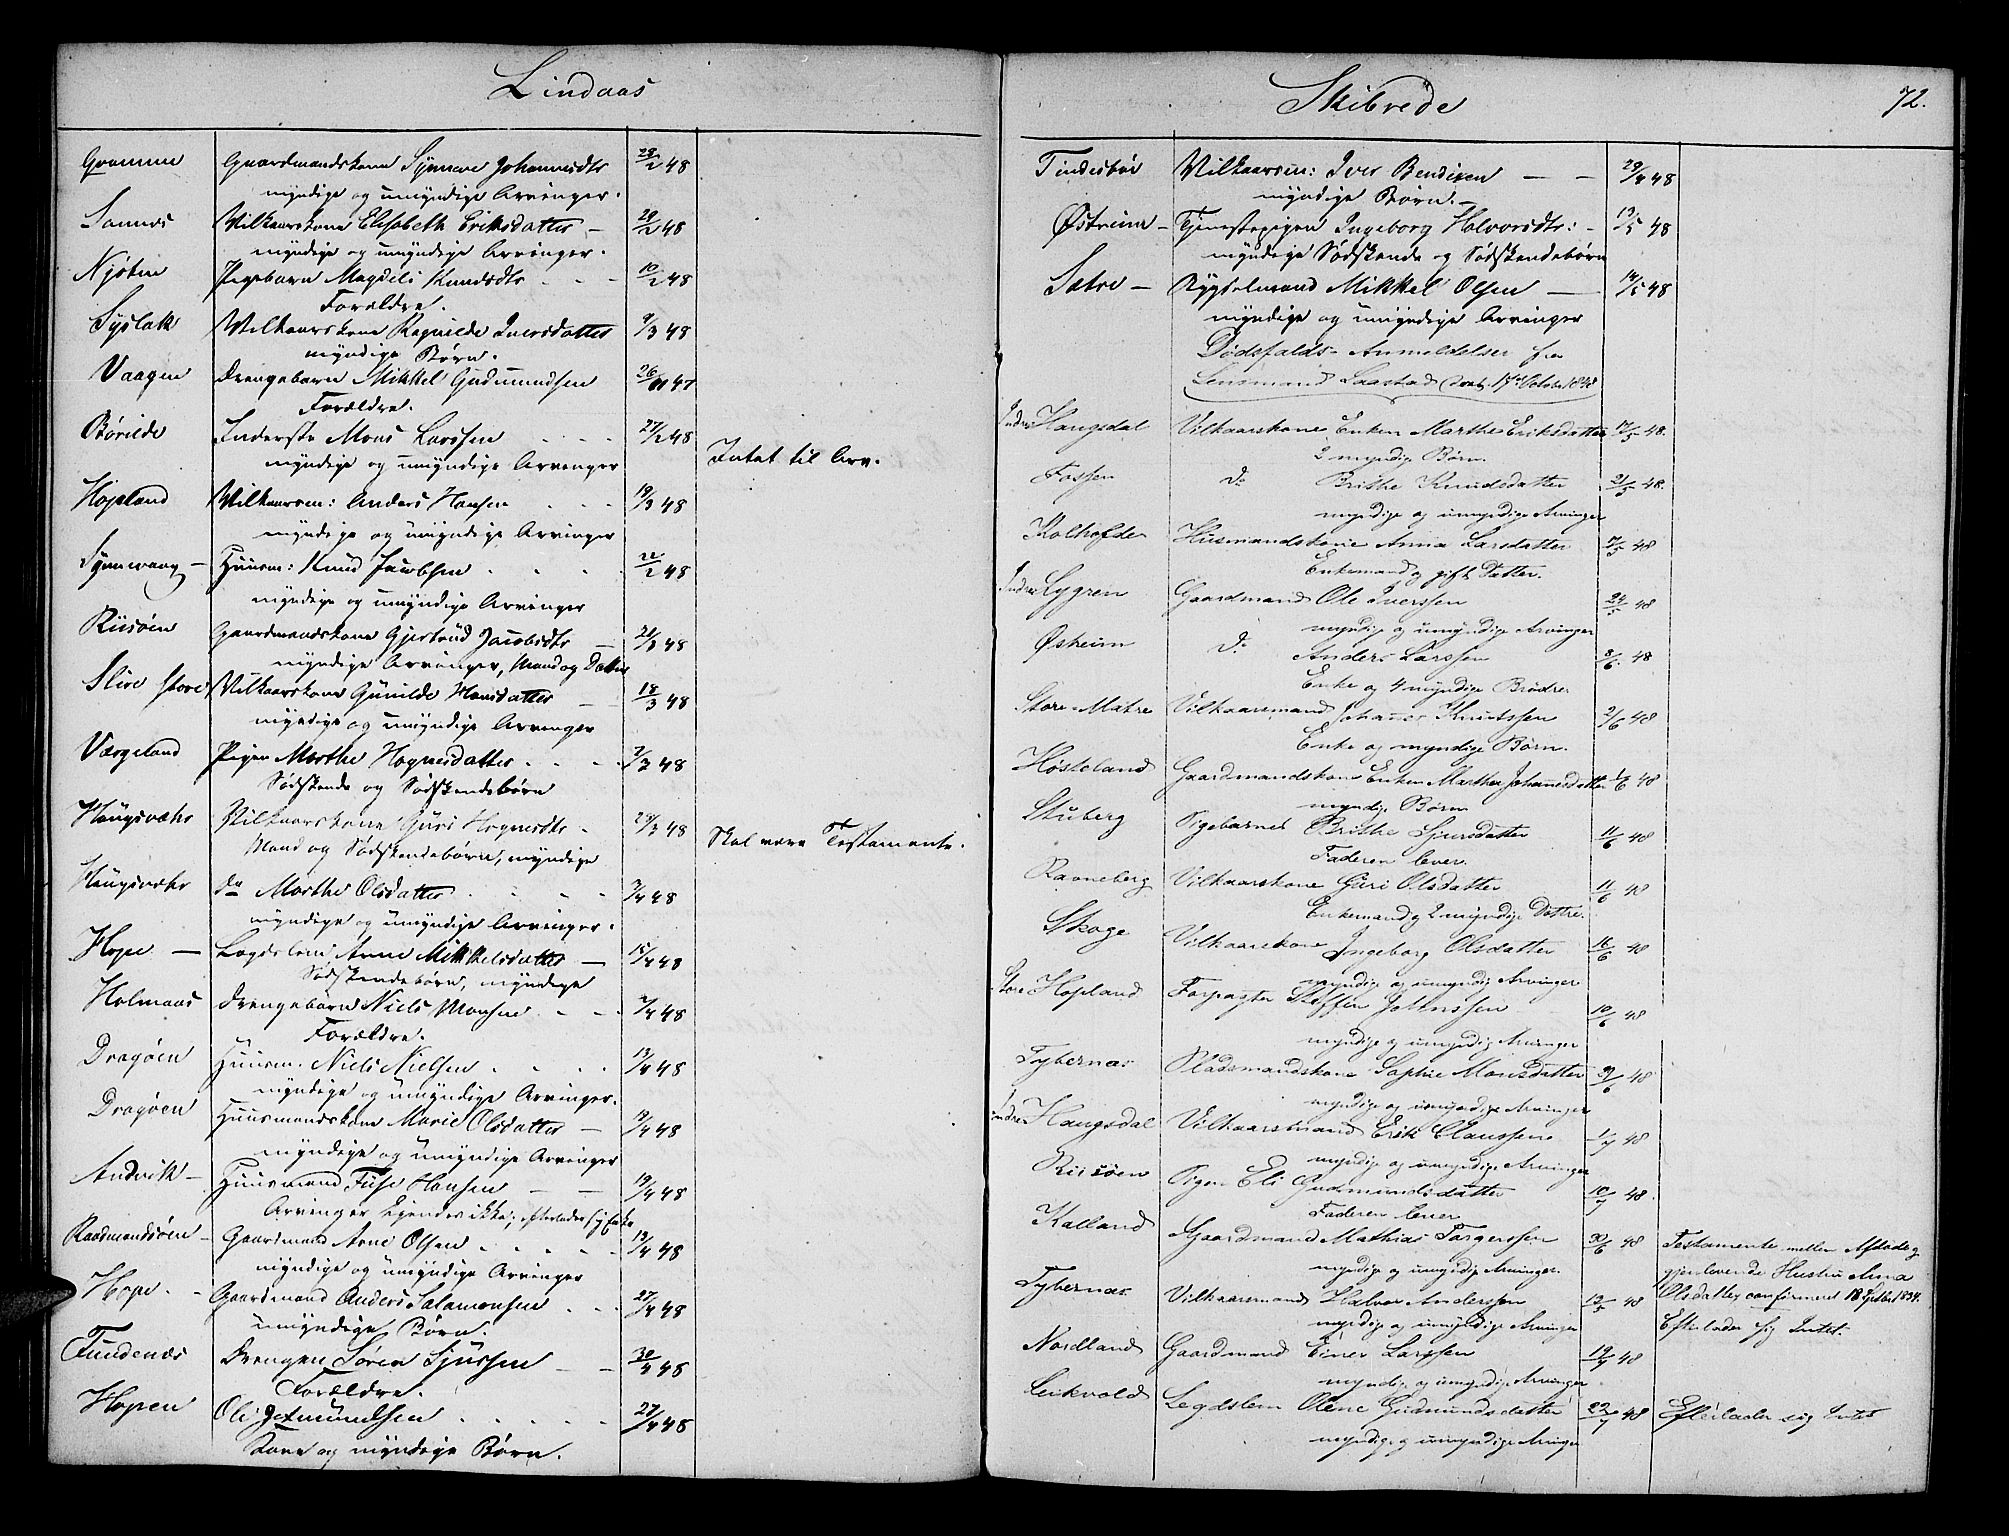 Lindaas
Gramme Gaardmandskone Synneve Johannesdtr 28/2 48
myndige og umyndige Arvinger.
Sannes Vilkaarskone Elisabeth Eriksdatter – 29/2 48
myndige og umyndige Arvinger.
Njøten Pigebarn Magdeli Knudsdtr 10/2 48
Forældre.
Syslak Vilkaarskone Ragnilde Iversdatter 9/3 48
myndige Børn.
Vaagen Drengebarn Mikkel Gudmundsen 47
Forældre.
Børilde Inderste Mons Larssen 27/2 48
myndige og umyndige Arvinger Intet til Arv.
Hopland Vilkaarsm: Anders Hansen 19/3 48
myndige og umyndige Arvinger
Synnevaag – Huusm: Knud Jacobsen 22/2 48
myndige og umyndige Arvinger
Riisøen Gaardmandskone Gjertrud Jacobsdtr – 21/3 48
myndige Arvinger, Mand og Datter
Slire store Vilkaarskone Gunilde Hansdatter – 18/3 48
myndige og umyndige Arvinger
Værgeland Pigen Marthe Hognesdatter 7/3 48
Sødskende og Sødskendebørn
Haugsvær Vilkaarskone Guri Hognesdtr – 29/3 48
Mand og Sødskendebørn, myndige Skal være Testamente.
Haugsvær do Marthe Olsdatter 7/4 48
myndige og umyndige Arvinger.
Hope – Lægdslem Anne Mikkelsdatter – 15/4 48
Sødskendebørn, myndige
Holmaas Drengebarn Niels Monsen 7/4 48
Forældre.
Dragøen Huusm. Niels Nielsen 13/4 48
myndige og umyndige Arvinger.
Dragøen Huusmandskone Marie Olsdatter – 12/4 48
myndige og umyndige Arvinger
Andvik – Huusmand Fuse Hansen – – 19/4 48
Arvinger kjendes ikke; efterlader sig Enke
Raadmandsøen – Gaardmand Arne Olsen 13/4 48
myndige og umyndige Arvinger
Hope – Gaardmand Anders Salamonsen 27/4 48
umyndige Børn.
Fundenæs Drengen Søren Sjursen – – 30/4 48
Forældre.
Hopen Ole 27/4 48
Kone og myndige Børn.
Skibrede 72.
Tindesbør Vilkaarsm: Iver Bendixen – – 29/4 48
myndige Børn. –
Østreim – Tjenestepigen Ingeborg Halvorsdtr: – 13/5 48
myndige Sødskende og Sødskendebørn
Sætre – Rygdelmand Mikkel Olsen – 14/5 48
myndige og umyndige Arvinger
Dødsfalds-Anmeldelser fra
Lensmand Saastad 17de October 1848
Indre Haugsdal Vilkaarskone Enken Marthe Eriksdatter 17/5 48.
2 myndige Børn.
Fossen do Brithe Knudsdatter 21/5 48.
myndige og umyndige Arvinger
Kolhofde Husmandskone Anna Larsdatter 7/5 48
Enkemand og gift Datter.
Indre Lygren Gaardmand Ole Iverssen 24/5 48
myndige og umyndige Arvinger
Øsheim do Anders Larssen 8/6 48
Enke og 4 myndige Brødre.
Store Matre Vilkaarsmand Johannes Knutssen 2/6 48
Enke og myndige Børn.
Høsteland Gaardmandskone Enken Marthe Johannesdatter 1/6 48
myndige Børn
Stuberg Pigebarnet Brithe Sjursdatter 11/6 48
Faderen lever.
Ravneberg Vilkaarskone Guri Olsdatter 11/6 48
Enkemand og 2 myndige Døttre.
Skoge Vilkaarskone Ingeborg Olsdatter 16/6 48
myndige og umyndige Arvinger
Store Hopland Forpagter Steffen Johnssen 10/6 48
myndige og umyndige Arvinger
Tybernæs Pladsmandskone Sophie Monsdatter 9/6 48
myndige og umyndige Arvinger
Indre Haugsdal Vilkaarsmand Erik Claussen 1/7 48
myndige og umyndige Arvinger
Riisøen Pigen Eli Gudmundsdatter 10/7 48.
Faderen lever
Kalland Gaardmand Mathias Torgerssen 30/6 48 Testamente mellem Afdøde og
myndige og umyndige Arvinger. gjenlevende Hustru Anna
Tybernæs Vilkaarsmand Halvor Anderssen 13/5 48 Olsdatter confirmeret 18 1834.
myndige og umyndige Arvinger Efterlader sig Intet.
Nordland Gaardmand Einer Larssen 19/7 48
myndige og umyndige Arvinger
Leikvold Legdslem Olene Gudmundsdatter 22/7 48 Efterlader sig Intet
myndige og umyndige Arvinger